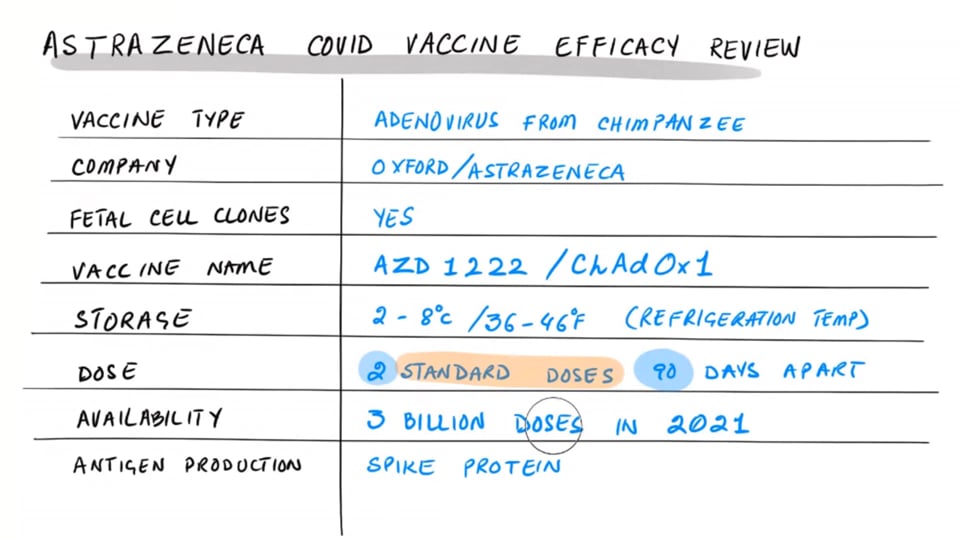 ASTRAZENECA COVID VACCINE EFFICACY REVIEW
VACCINE TYPE ADENOVIRUS FROM CHIMPANZEE
COMPANY OXFORD/ASTRAZENECA
FETAL CELL CLONES YES
VACCINE NAME AZD 1222 / ChAdOx1
STORAGE 2 - 8°C / 36 - 46°F (REFRIGERATION TEMP)
DOSE 2 STANDARD DOSES 90 DAYS APART
AVAILABILITY 3 BILLION DOSES IN 2021
ANTIGEN PRODUCTION SPIKE PROTEIN